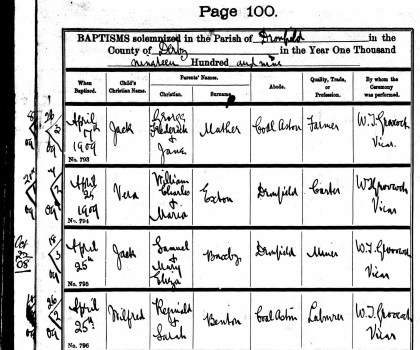 Page 100.
BAPTISMS solemnized in the Parish of Dronfield in the
County of Derby in the Year One Thousand
nineteen Hundred and nine
When Baptized.
Child's Christian Name.
Parents' Names.
Christian.
Surname.
Abode.
Quality, Trade, or Profession.
By whom the Ceremony was performed.
April
7th
1909
No. 793
Jack
George
Frederick
&
Jane
Mather
Coal Aston
Farmer
Vicar.
April
25
1909
No. 794
Vera
William
Charles
&
Maria
Exton
Dronfield
Carter
Vicar
April
25th
No. 795
Jack
Samuel
&
Mary
Eliza
Dronfield
Miner
Vicar
April
25th
No. 796
Wilfred
Reginald
&
Sarah
Benton
Coal Aston
Labourer
Vicar